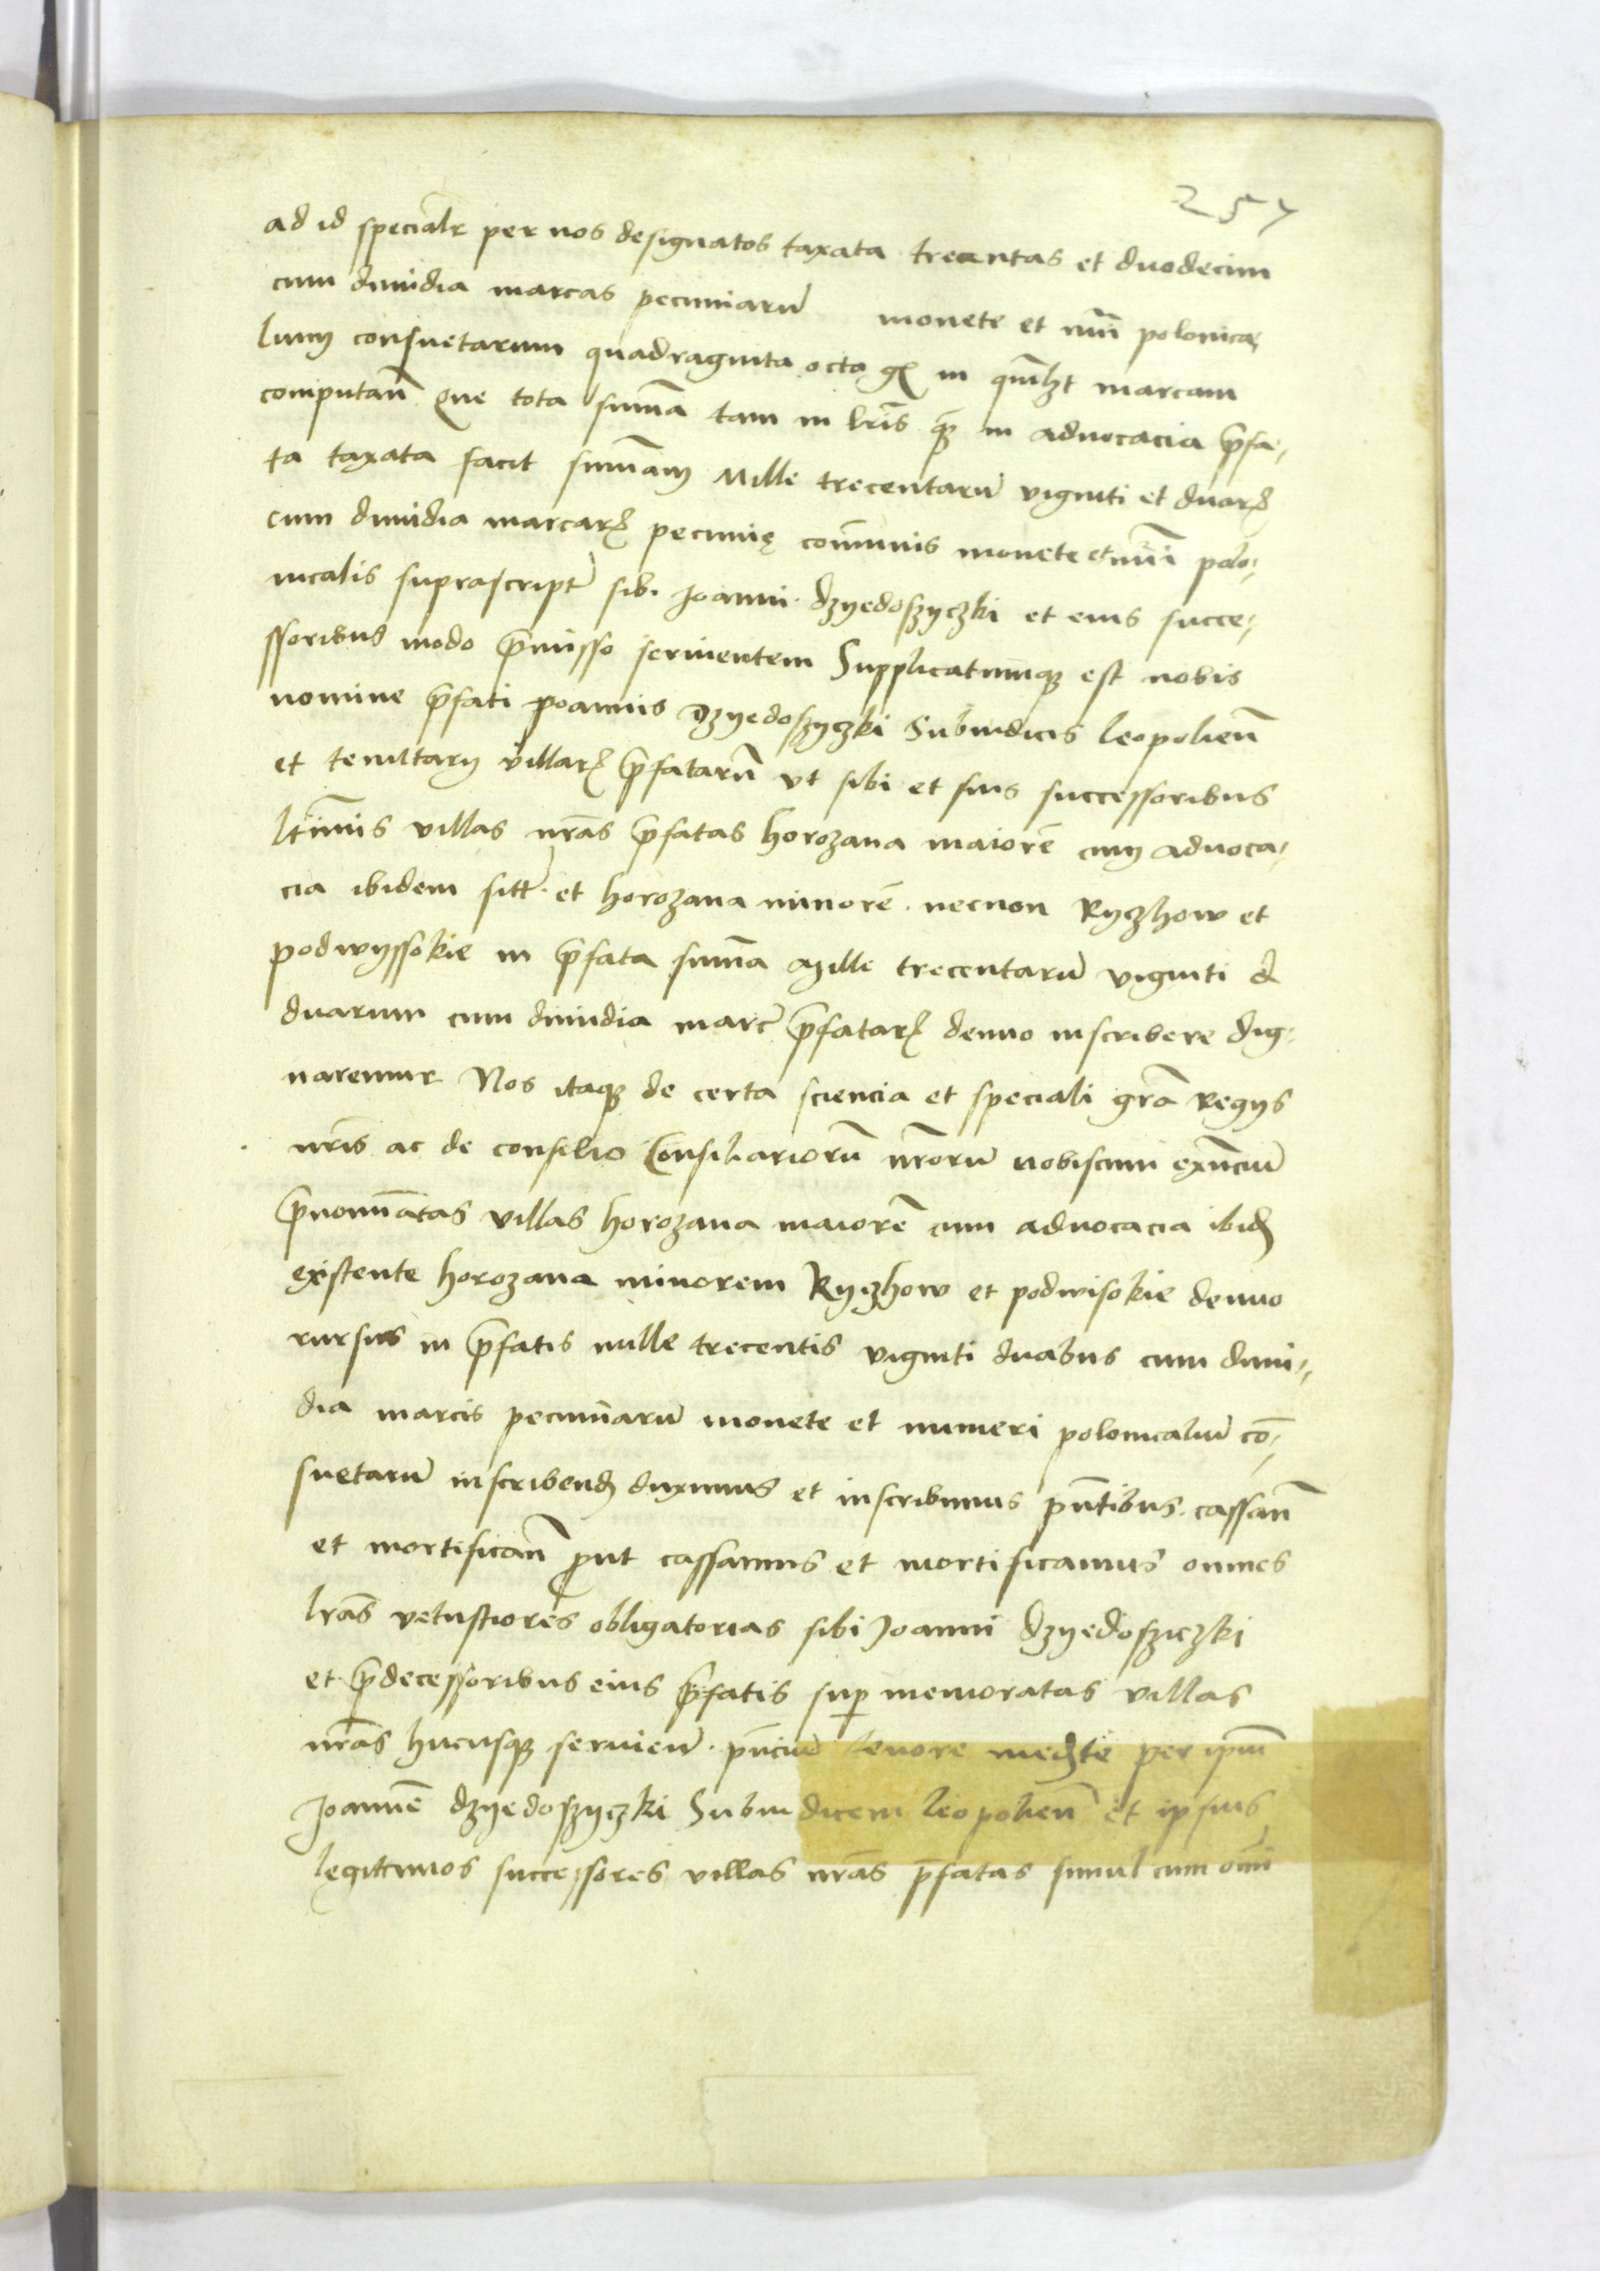 257
ad id specialr per nos designatos taxata trecentas et duodecim
cum dimidia marcas pecuniarũ monete et nũi polonica-
lium consuetarum quadraginta octo gř in qũlibt marcam
computañ Que tota sum̃a tam in lr̃is q̃ꝫ in advocacia p̃fa-
ta taxata facit sum̃am Mille trecentarũ viginti et duarꝝ
cum dimidia marcarꝝ pecunię com̃unis monete et nũi polo-
nicalis suprascript̃ sibi Joanni dzyedoszyczki et eius succe-
ssoribus modo p̃misso servientem Supplicatumqꝫ est nobis
nomine p̃fati Joannis Dzyedoszyczki Subiudicis leopolieñ
et tenutarij villarꝝ p̃fatarũ vt sibi et suis successoribus
ltĩmis villas nr̃as p̃fatas horozana maiorẽ cum advoca-
cia ibidem sitt̃ et horozana minorẽ necnon Ryczhow et
podwyssokie in p̃fata sum̃a Mille trecentarũ viginti et
duarum cum dimidia marc̃ p̃fatarꝝ denuo inscribere dig-
naremur Nos itaqꝫ de certa sciencia et speciali gr̃a Regijs
nr̃is ac de consilio Consiliariorũ nr̃orũ nobiscum exñciũ
p̃nomĩatas villas horozana maiorẽ cum advocacia ibiđ
existente horozana minorem Ryczhow et podwisokie denuo
rursus in p̃fatis mille trecentis viginti duabus cum dimi-
dia marcis pecuniarũ monete et numeri polonicaliũ cõ-
suetarũ inscribenđ duximus et inscribimus pñtibus cassañ
et mortificañ prout cassamus et mortificamus omnes
lr̃as vetustiores obligatorias sibi Joanni dzyedosziczki
et p̃decessoribus eius p̃fatis sup̱ memoratas villas
nr̃as hucusqꝫ servieñ pñciũ tenore međte per ip̃um
Joannẽ dzyedoszyczki Subiudicem leopolieñ et ipsius
legittimos successores villas nr̃as p̃fatas simul cum om̃i